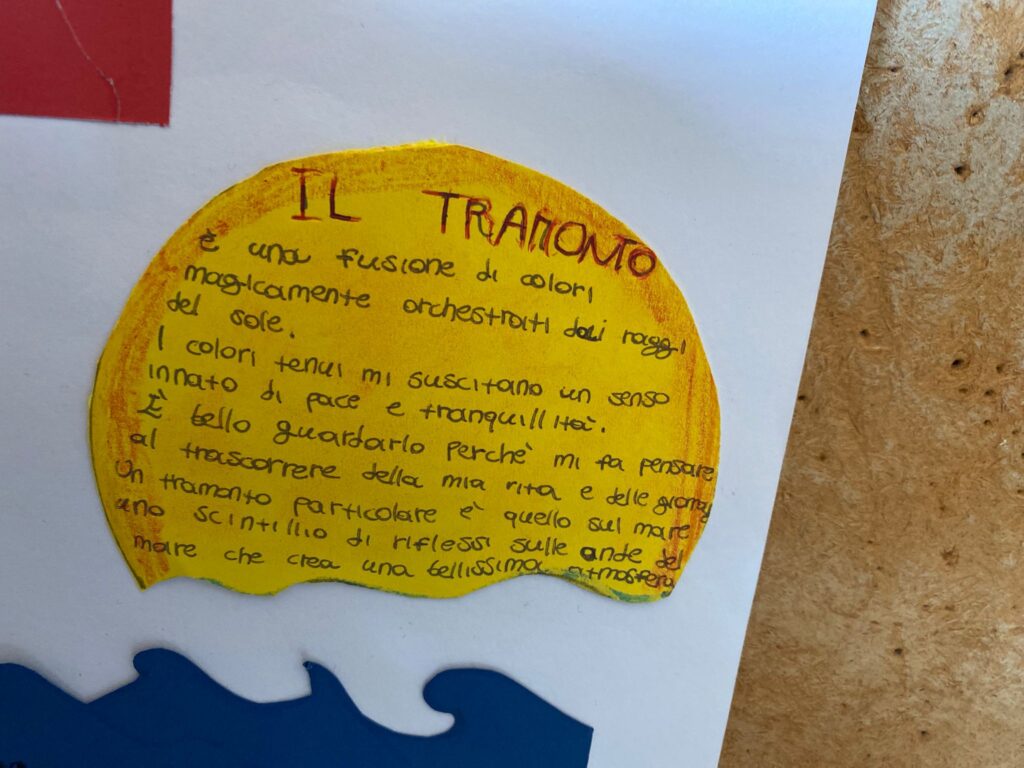 IL TRAMONTO
è una fusione di colori
magicamente orchestrati dai raggi
del sole.
I colori tenui mi suscitano un senso
innato di pace e tranquillità.
È bello guardarlo perchè mi fa pensare
al trascorrere della mia vita e delle
Un tramonto particolare è quello sul mare
uno scintillio di riflessi sulle onde del
mare che crea una bellissima atmosfera